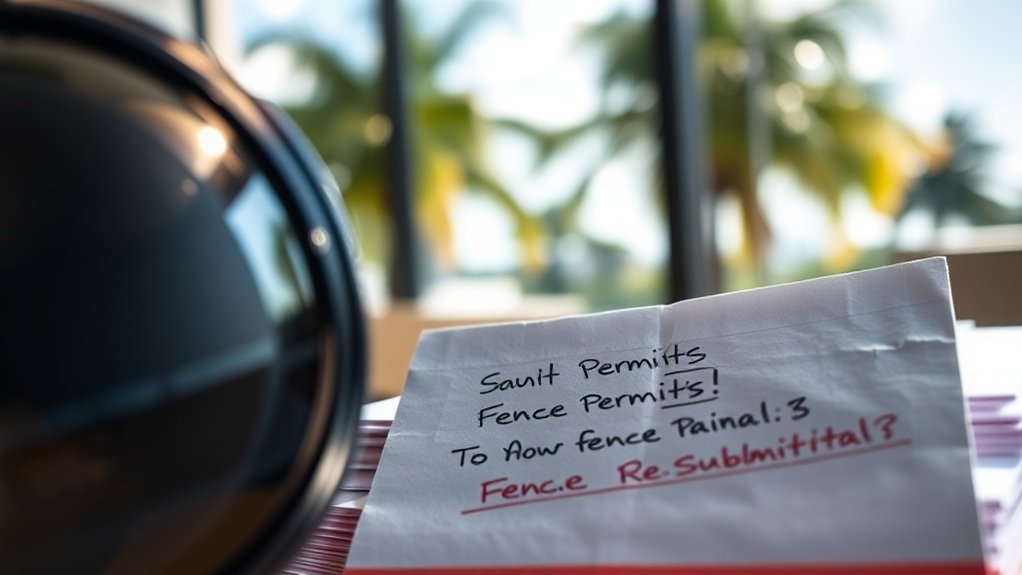 Sauit Permits
Fence Permits!
To How fence Painal: 3
Fenc.e Re.Sublmitital?